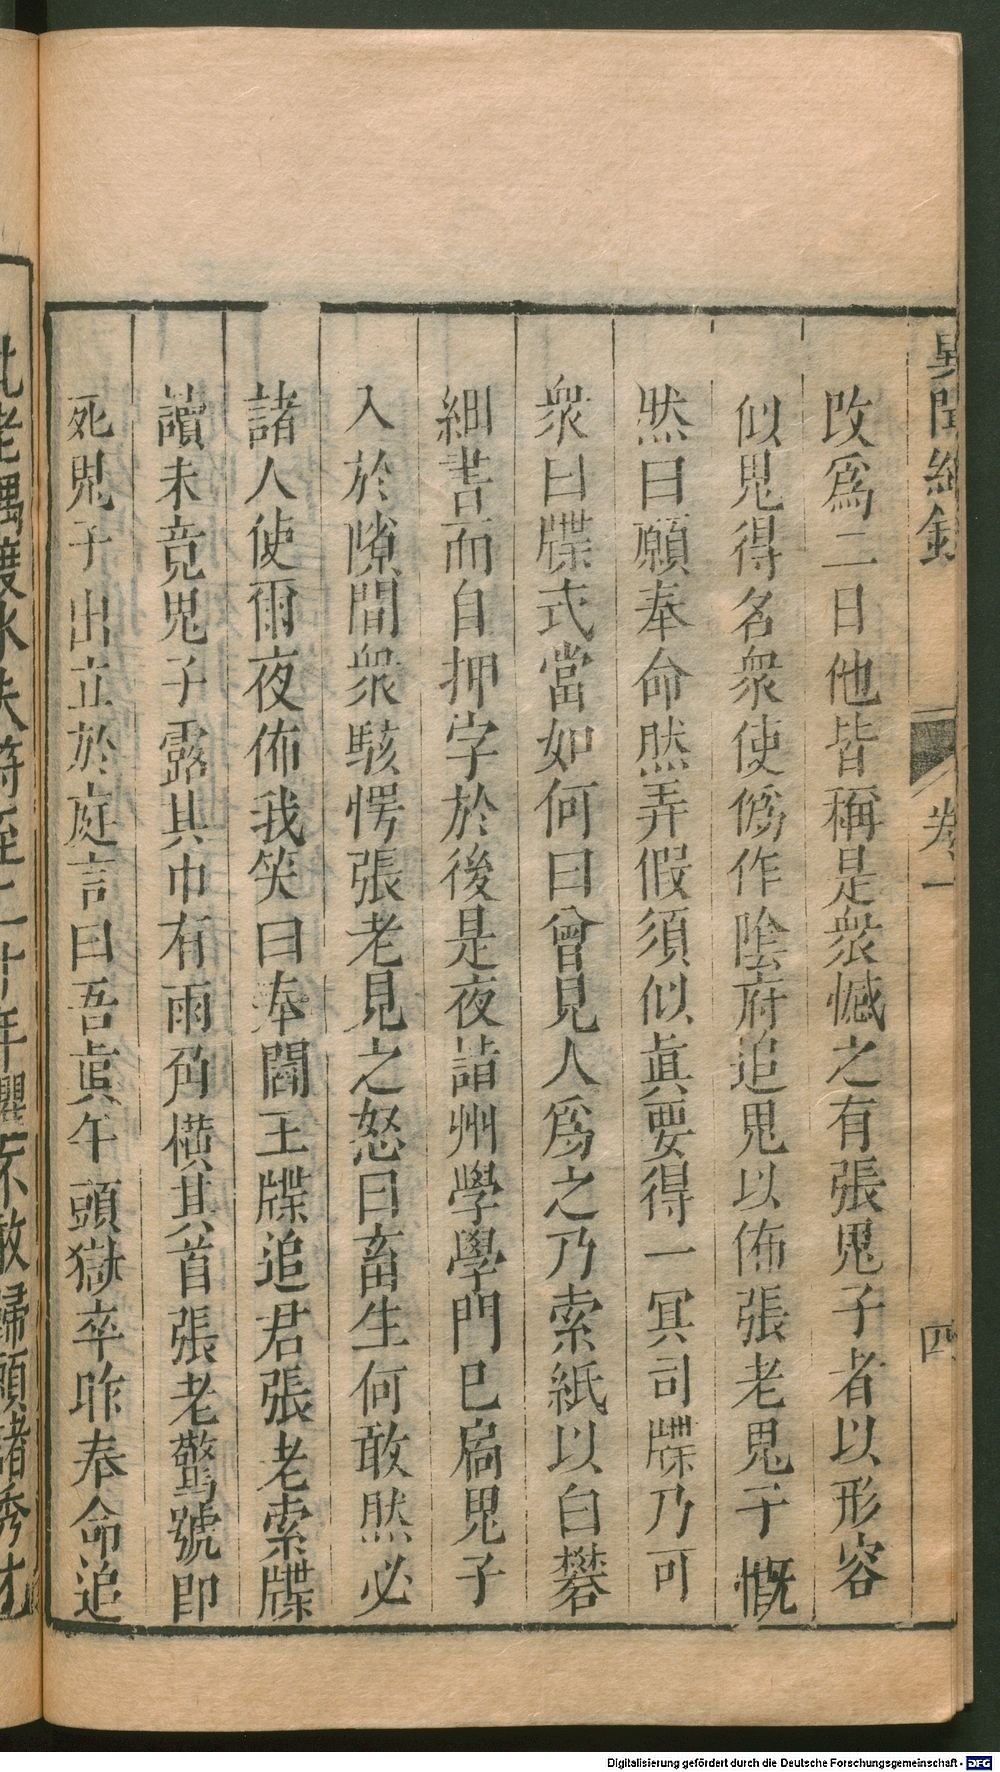 異聞總錄
卷一
四
改爲二日他皆稱是衆憾之有張鬼子者以形容
似鬼得名衆使僞作陰府追鬼以佈張老鬼子慨
然曰願奉命然弄假須似眞要得一冥司牒乃可
衆曰牒式當如何曰曾見人爲之乃索紙以白礬
細書而自押字於後是夜詣州學學門已扃鬼子
入於隙間衆駭愕張老見之怒曰畜生何敢然必
諸人使爾夜佈我笑曰奉閻王牒追君張老索牒
讀未竟鬼子露其巾有兩角橫其首張老驚號卽
死鬼子出立於庭言曰吾眞午頭獄卒昨奉命追
老偶渡水失符至二十年懼不敢歸賴諸秀才
Digitalisierung gefördert durch die Deutsche Forschungsgemeinschaft - DFG